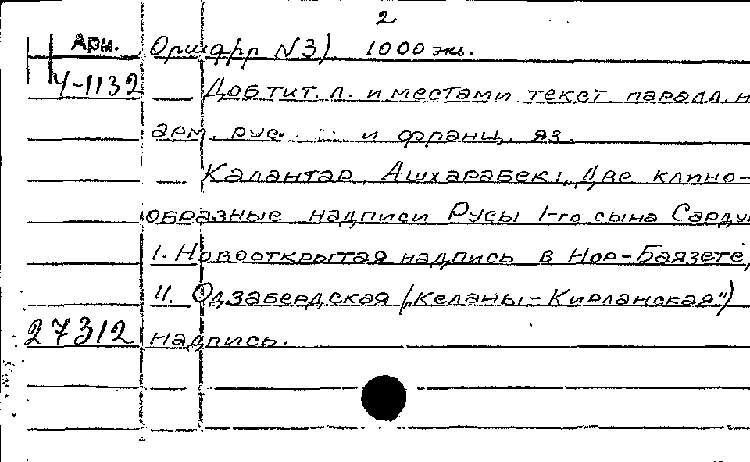 2
Арм. Оршарр N3). 1000 экз.
4-1132 — Доб тит. л. и местами текст паралл. н
арм. рус. и франц. яз.
— Калантар, Ашхарабек, Две клино-
образные надписи Русы 1-го сына Сарду
I. Новооткрытая надпись в Нор-Баязете,
II. Одзабердская („Келаны-Кирланская")
27312 надпись.